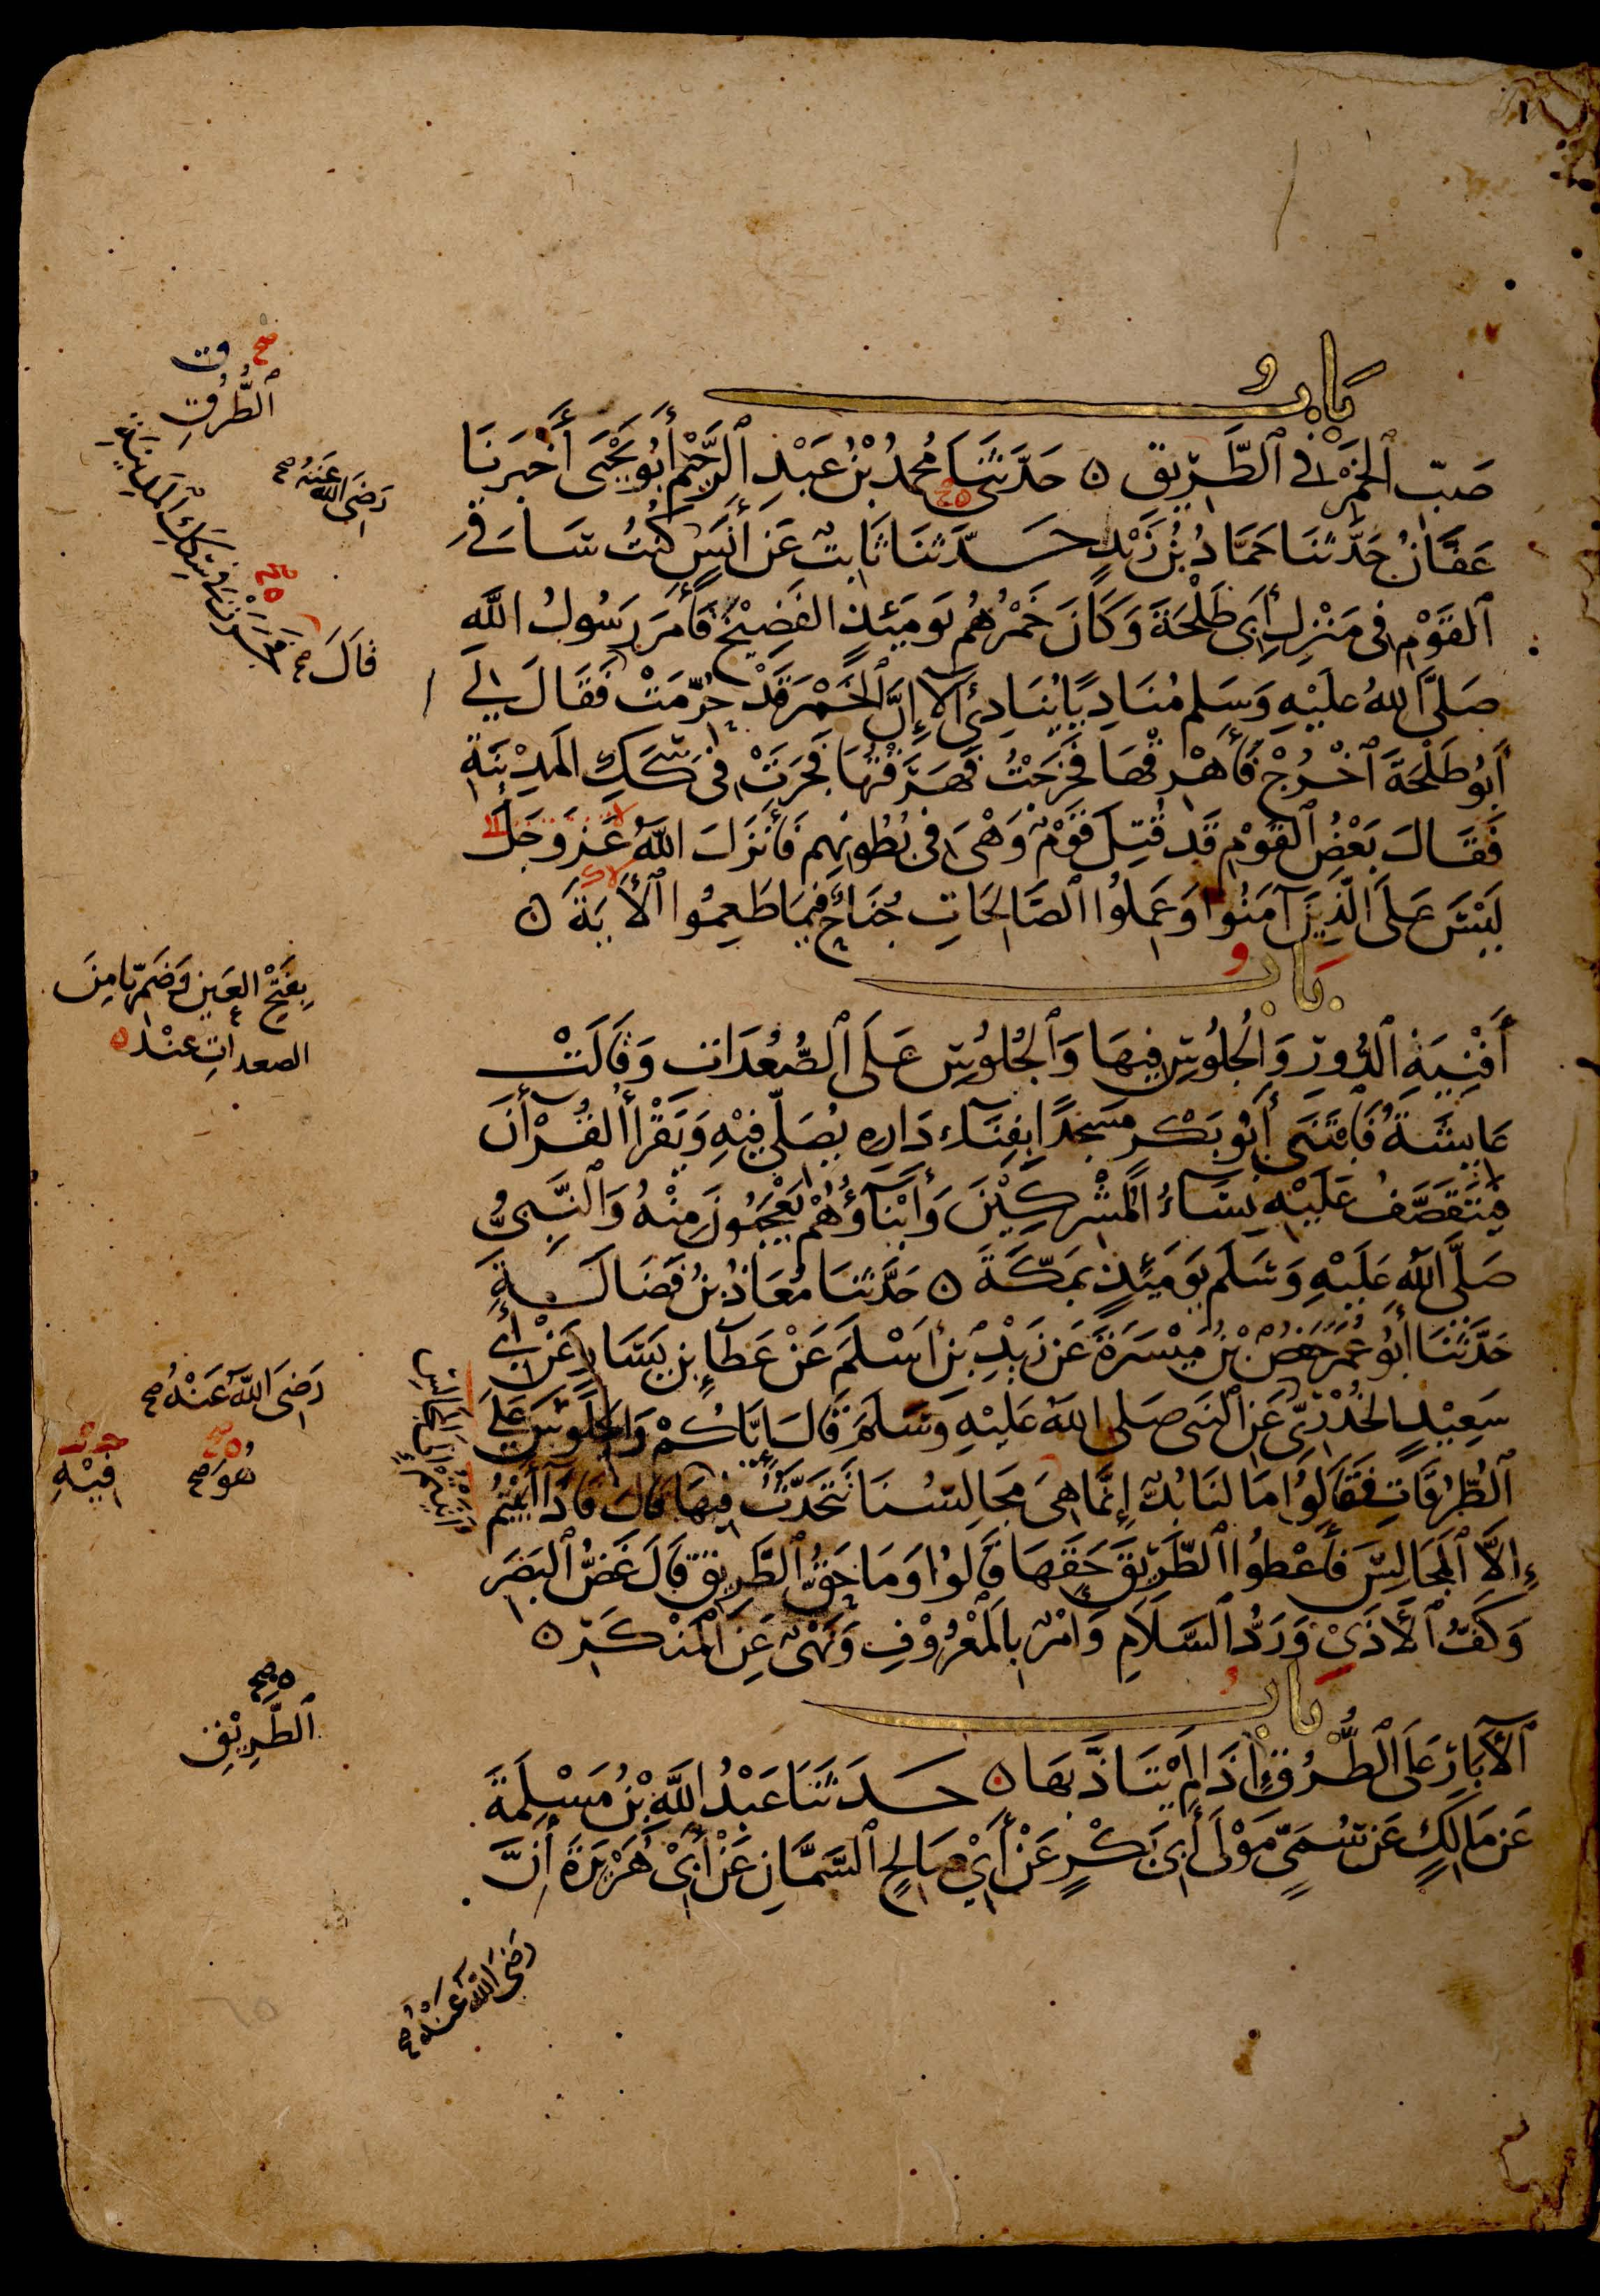 بَابُ
صَبِّ ٱلخَمْرِ فِي ٱلطَّرِيقِ ه حَدَّثَنَا مُحمدُ بْنُ عَبْدِ ٱلرَّحِيْمِ أَبُو يَحْيَى أَخْبَرَنَا
عَفَّانُ حَدَّثَنَا حَمَّادُ بْنُ زَيْدٍ حَدَّثَنَا ثَابِتٌ عَن أَنَسٍ كُنْتُ سَاقِيَ
ٱلقَوْمِ فِى مَنْزِلِ أَبِى طَلْحَةَ وَكَانَ خَمْرُهُم يَومَئِذٍ الفَضِيْخَ فَأَمَرَ رَسُولُ اللَّهِ
صَلَّى اللهُ عليْهِ وَسَلم مُنَادِيًا يُنَادِىْ أَلَآ إِنَّ ٱلخَمْرَ قَدْ حُرِّمَتْ فَقَالَ لِي
أَبُو طَلْحَةَ ٱخْرُجْ فَأَهْرِقْهَا فَخَرَجْتُ فَهَرَقْتُهَا فَجَرَتْ فِى سِكَكِ المَدِيْنَةِ
فَقَالَ بَعْضُ ٱلقَوْمِ قَد قُتِلَ قَوْمٌ وَهْىَ فِى بُطُونِهِم فَأَنْزَلَ اللَّهُ عَزَّ وَجَلَّ
لَيْسَ عَلَى الَّذِيْنَ آمَنُوا وَعَمِلُوا ٱلصَّالِحَاتِ جُنَاحٌ فِيمَا طَعِمُوا ٱلأَيَةَ ه
بَابُ
أَفْنِيَةِ ٱلدُّورِ وَالجُلُوسِ فِيهَا وَٱلجُلُوسِ عَلَى ٱلصُّعُدَاتِ وَقَالَتْ
عَايِشَةُ فَابْتَنَى أَبُو بَكْرٍ مَسْجِدًا بِفِنَآءِ دَارِهِ يُصَلِّى فِيْهِ وَيَقْرَأُ ٱلقُرْأنَ
فَيَتَقَصَّفُ عَلَيْهِ نِسَآءُ المُشْرِكِيْنَ وَأَبْنَآؤُهُمْ يَعْجَبُونَ مِنْهُ وَٱلنَّبِيُّ
صَلَّى اللَّهُ عَلَيْهِ وَسَلَم يَومَئِذٍ بِمَكَّةَ ه حَدَّثَنَا مُعَاذُ بْنُ فَضَالَةَ
حَدَّثَنَا أَبُو عُمَرَ حَفْصُ بْنُ مَيْسَرَةَ عَن زَيْدِ بْنِ أَسْلَمَ عَنْ عَطَآءِ بْنِ يَسَارٍ عَنْ أَبِي
سَعِيْدٍ الخُدْرِىِّ عَنِ ٱلنَّبِى صَلى اللهُ عَلَيْهِ وَسَلَمَ قَالَ إِيَّاكُمْ وَالجُلُوسَ عَلَى
ٱلطُّرُقَاتِ فَقَالُوا مَا لَنَا بُدٌّ إِنَّمَا هِىَ مَجَالِسُنَا نَتَحَدَّثُ فِيهَا قَالَ فَإِذَا أَبَيْتُمْ
إِلَّا ٱلمَجَالِسَ فَأَعْطُوا ٱلطَّرِيقَ حَقَّهَا قَالُوا وَمَا حَقُّ ٱلطَّرِيْقِ قَالَ غَضُّ ٱلبَصَرِ
وَكَفُّ ٱلأَذَىْ وَرَدُّ ٱلسَّلَامِ وَأَمْرٌ بِٱلمَعْرُوْفِ وَنَهْىٌ عَنِ ٱلمُنْكَرِ ه
بَابُ
ٱلآبَارِ عَلَى ٱلطُّرُقِ إِذَا لَمْ يُتَأَذَّ بِهَا ه حَدَثَنَا عَبْدُ اللَّهِ بْنُ مَسْلَمَةَ
عَن مَالِكٍ عَن سُمَىٍّ مَوْلَى أَبِى بَكْرٍ عَنْ أَبِيْ صَالِحٍ ٱلسَّمَّانِ عَنْ أَبِىْ هُرَيْرَةَ أَنَّ
صح ت
ٱلطُّرُقِ
رَضِيَ اللهُ عَنْهُ صح
قَالَ صح فَجَرَتْ فِى سِكَكِ ٱلمَدِيْنَةِ
بِفَتْحِ العَيْنِ وَضَمِّهَا مِنَ
الصعداتِ عِنْدَ ه
رَضِيَ اللَّهُ عَنْهُ صح
هُوَ صح
فِيْهِ
أَتَيْتُمْ إِلَى المَجَالِسِ
ه صح
ٱلطَّرِيْقِ
رَضِيَ اللَّهُ عَنْهُ صح